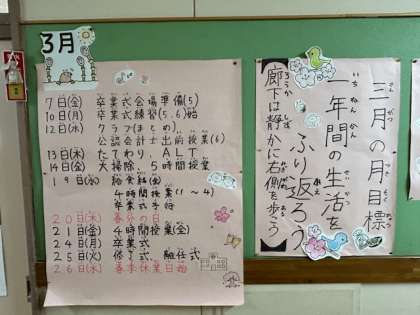 3月
7日(金) 卒業式会場準備(5)
10日(月) 卒業式練習(5.6)始
12日(水) クラブ(まとめ)、
公認会計士出前授業(6)
13日(木) たてわり、ALT
14日(金) 大掃除、5時間授業
19日(水) 給食終
4時間授業(1～4)
卒業式予行
20日(木) 春分の日
21日(金) 4時間授業(全)
24日(月) 卒業式
25日(火) 修了式、離任式
26日(水) 春季休業日
三月の月目標
一年間の生活を
ふり返ろう
【廊下は静かに右側を歩こう】